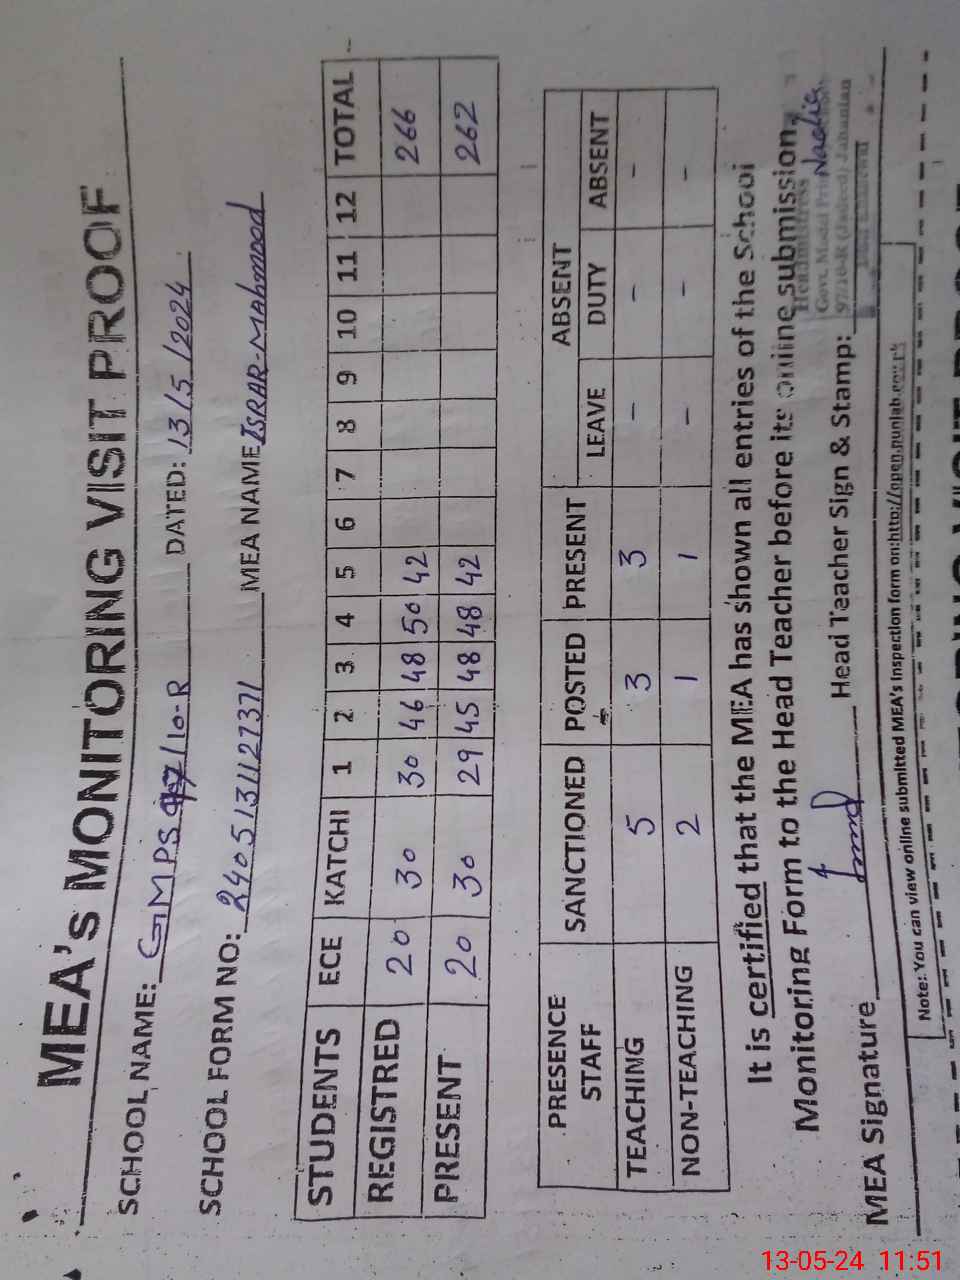 MEA's MONITORING VISIT PROOF
SCHOOL NAME: GMPS 97/10-R DATED: 13/5/2024
SCHOOL FORM NO: 2405131127371 MEA NAME ISRAR-MAhmood
STUDENTS ECE KATCHI 1 2 3 4 5 6 7 8 9 10 11 12 TOTAL
REGISTRED 20 30 30 46 48 50 42 266
PRESENT 20 30 29 45 48 48 42 262
PRESENCE STAFF SANCTIONED POSTED PRESENT ABSENT
LEAVE DUTY ABSENT
TEACHING 5 3 3 - - -
NON-TEACHING 2 1 1 - - -
It is certified that the MEA has shown all entries of the School
Monitoring Form to the Head Teacher before its online submission.
Headmistress
Govt. Model
97/10-R (Jadeed) Jahanian
Nadia
MEA Signature Head Teacher Sign & Stamp:
Note: You can view online submitted MEA's Inspection form on:http://open.punjab.gov.pk
MONITORING VISIT PROOF
13-05-24 11:51